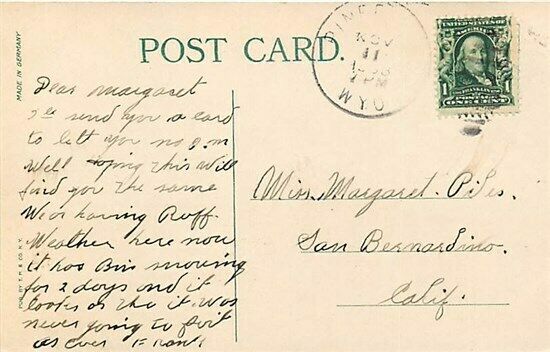 POST CARD.
MADE IN GERMANY
PINE
NOV
11
1908
PM
WYO
UNITED STATES OF AMERICA
1 FRANKLIN 1
ONE CENT
Dear Margaret
I'll send you a card
to let you no I'm
Well hoping this Will
find you the same
We or having Ruff
Weather here now
it has Bin snowing
for 2 days and it
looks as tho it Was
never going to Qwit
as ever Frank
Miss. Margaret. Piles.
San Bernardino.
Calif.
PUB. BY T. P. & CO. N.Y.